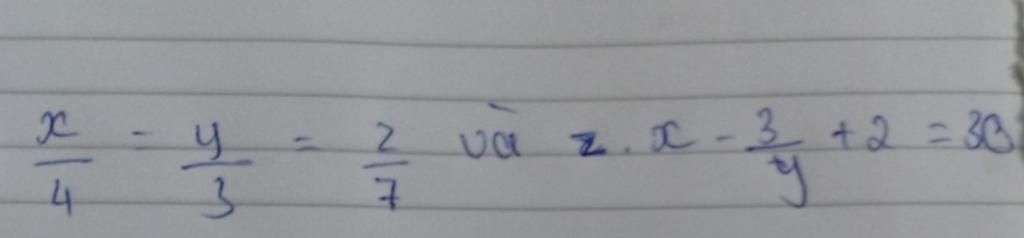 x/4 - y/3 = 2/7 và z . x - 3/y + 2 = 38